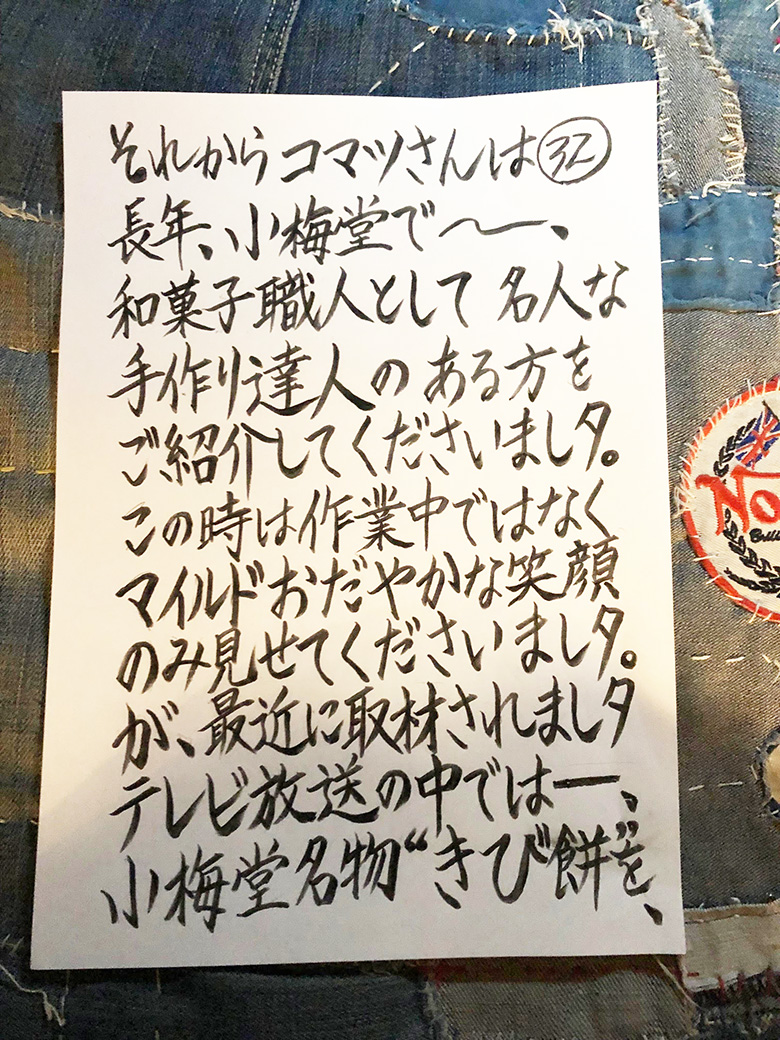 それからコマツさんは㉜
長年、小梅堂で〜、
和菓子職人として 名人な
手作り達人の ある方を
ご紹介してくださいましタ。
この時は作業中ではなく
マイルドおだやかな笑顔
のみ見せてくださいましタ。
が、最近に取材されましタ
テレビ放送の中では一、
小梅堂名物“きび餅”を、